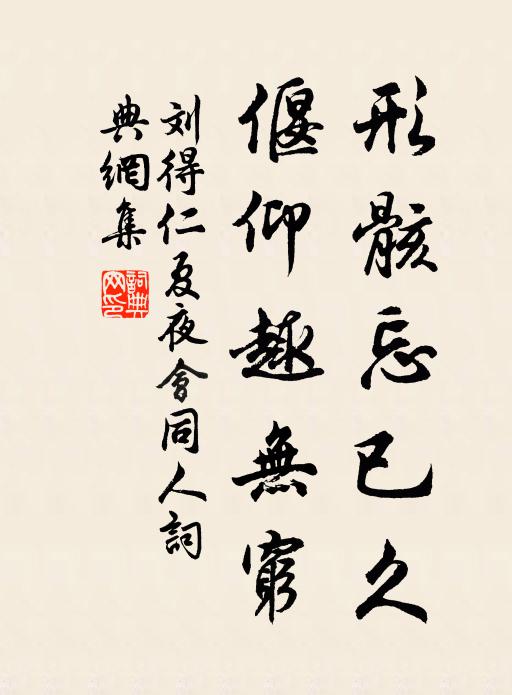 形骸忘已久
偃仰趣無窮
刘得仁夏夜會同人詞
典網集
詞典網印